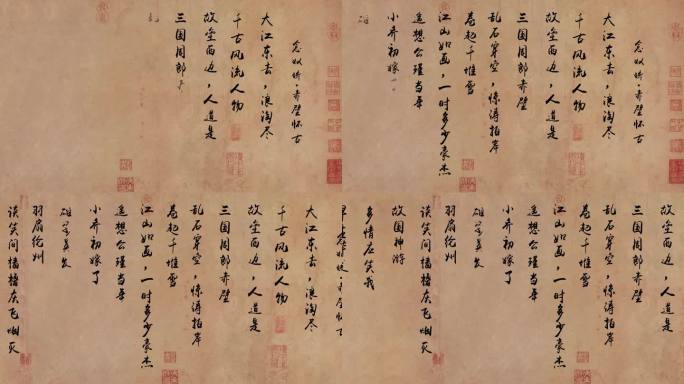 念奴娇·赤壁怀古
大江东去，浪淘尽
千古风流人物
故垒西边，人道是
三国周郎
念奴娇·赤壁怀古
大江东去，浪淘尽
千古风流人物
故垒西边，人道是
三国周郎赤壁
乱石穿空，惊涛拍岸
卷起千堆雪
江山如画，一时多少豪杰
遥想公瑾当年
小乔初嫁
大江东去，浪淘尽
千古风流人物
故垒西边，人道是
三国周郎赤壁
乱石穿空，惊涛拍岸
卷起千堆雪
江山如画，一时多少豪杰
遥想公瑾当年
小乔初嫁了
雄姿英发
羽扇纶
谈笑间樯橹灰飞烟灭
故垒西边，人道是
三国周郎赤壁
乱石穿空，惊涛拍岸
卷起千堆雪
江山如画，一时多少豪杰
遥想公瑾当年
小乔初嫁了
雄姿英发
羽扇纶
谈笑间樯橹灰飞烟灭
故国神游
多情应笑我